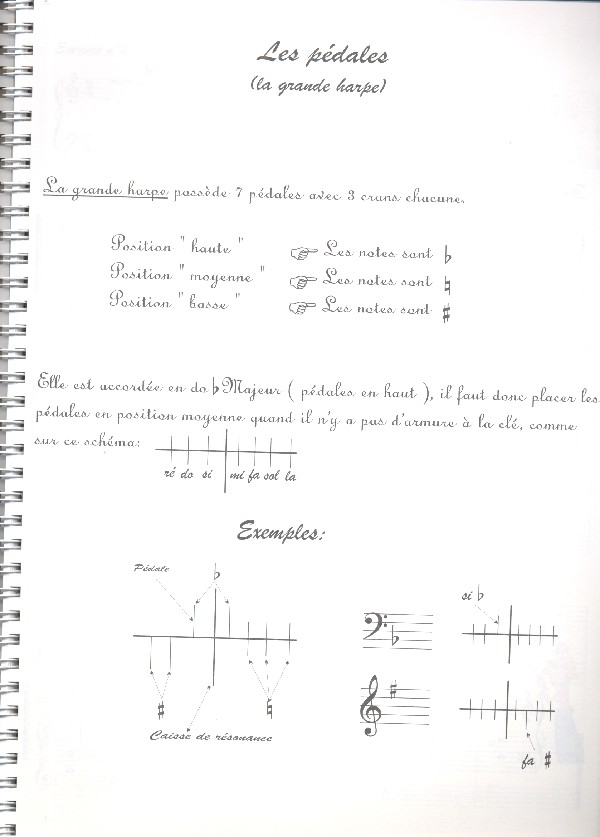 Les pédales
(la grande harpe)
La grande harpe possède 7 pédales avec 3 crans chacune.
Position " haute " ☞ Les notes sont ♭
Position " moyenne " ☞ Les notes sont ♮
Position " basse " ☞ Les notes sont ♯
Elle est accordée en do ♭ Majeur ( pédales en haut ), il faut donc placer les
pédales en position moyenne quand il n'y a pas d'armure à la clé, comme
sur ce schéma:
ré do si mi fa sol la
Exemples:
Pédale ♭
♯ ♮
Caisse de résonance
si ♭
fa ♯